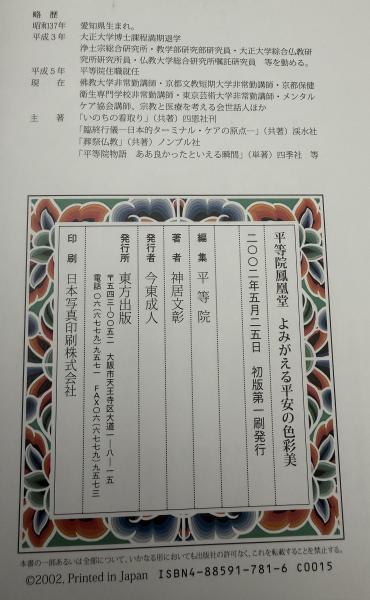 略　歴
昭和37年　愛知県生まれ。
平成３年　大正大学博士課程満期退学
浄土宗総合研究所・教学部研究部研究員・大正大学綜合仏教研
究所研究所員・仏教大学総合研究所嘱託研究員　等を勤める。
平成５年　平等院住職就任
現　在　佛教大学非常勤講師・京都文教短期大学非常勤講師・京都保健
衛生専門学校非常勤講師・東京芸術大学非常勤講師・メンタル
ケア協会講師、宗教と医療を考える会世話人ほか
主　著　「いのちの看取り」（共著）四恩社刊
「臨終行儀―日本的ターミナル・ケアの原点―」（共著）渓水社
「葬祭仏教」（共著）ノンブル社
「平等院物語　ああ良かったといえる瞬間」（単著）四季社　等
平等院鳳凰堂　よみがえる平安の色彩美
二〇〇二年五月二五日　初版第一刷発行
編集　平等院
著者　神居文彰
発行者　今東成人
発行所　東方出版
〒五四三―〇〇五二　大阪市天王寺区大道一―八―一五
電話〇六（六七七九）九五七一　FAX〇六（六七七九）九五七三
印刷　日本写真印刷株式会社
本書の一部あるいは全部について、いかなる形においても出版社の許可なく、これを転載することを禁止する。
©2002, Printed in Japan　ISBN4-88591-781-6 C0015